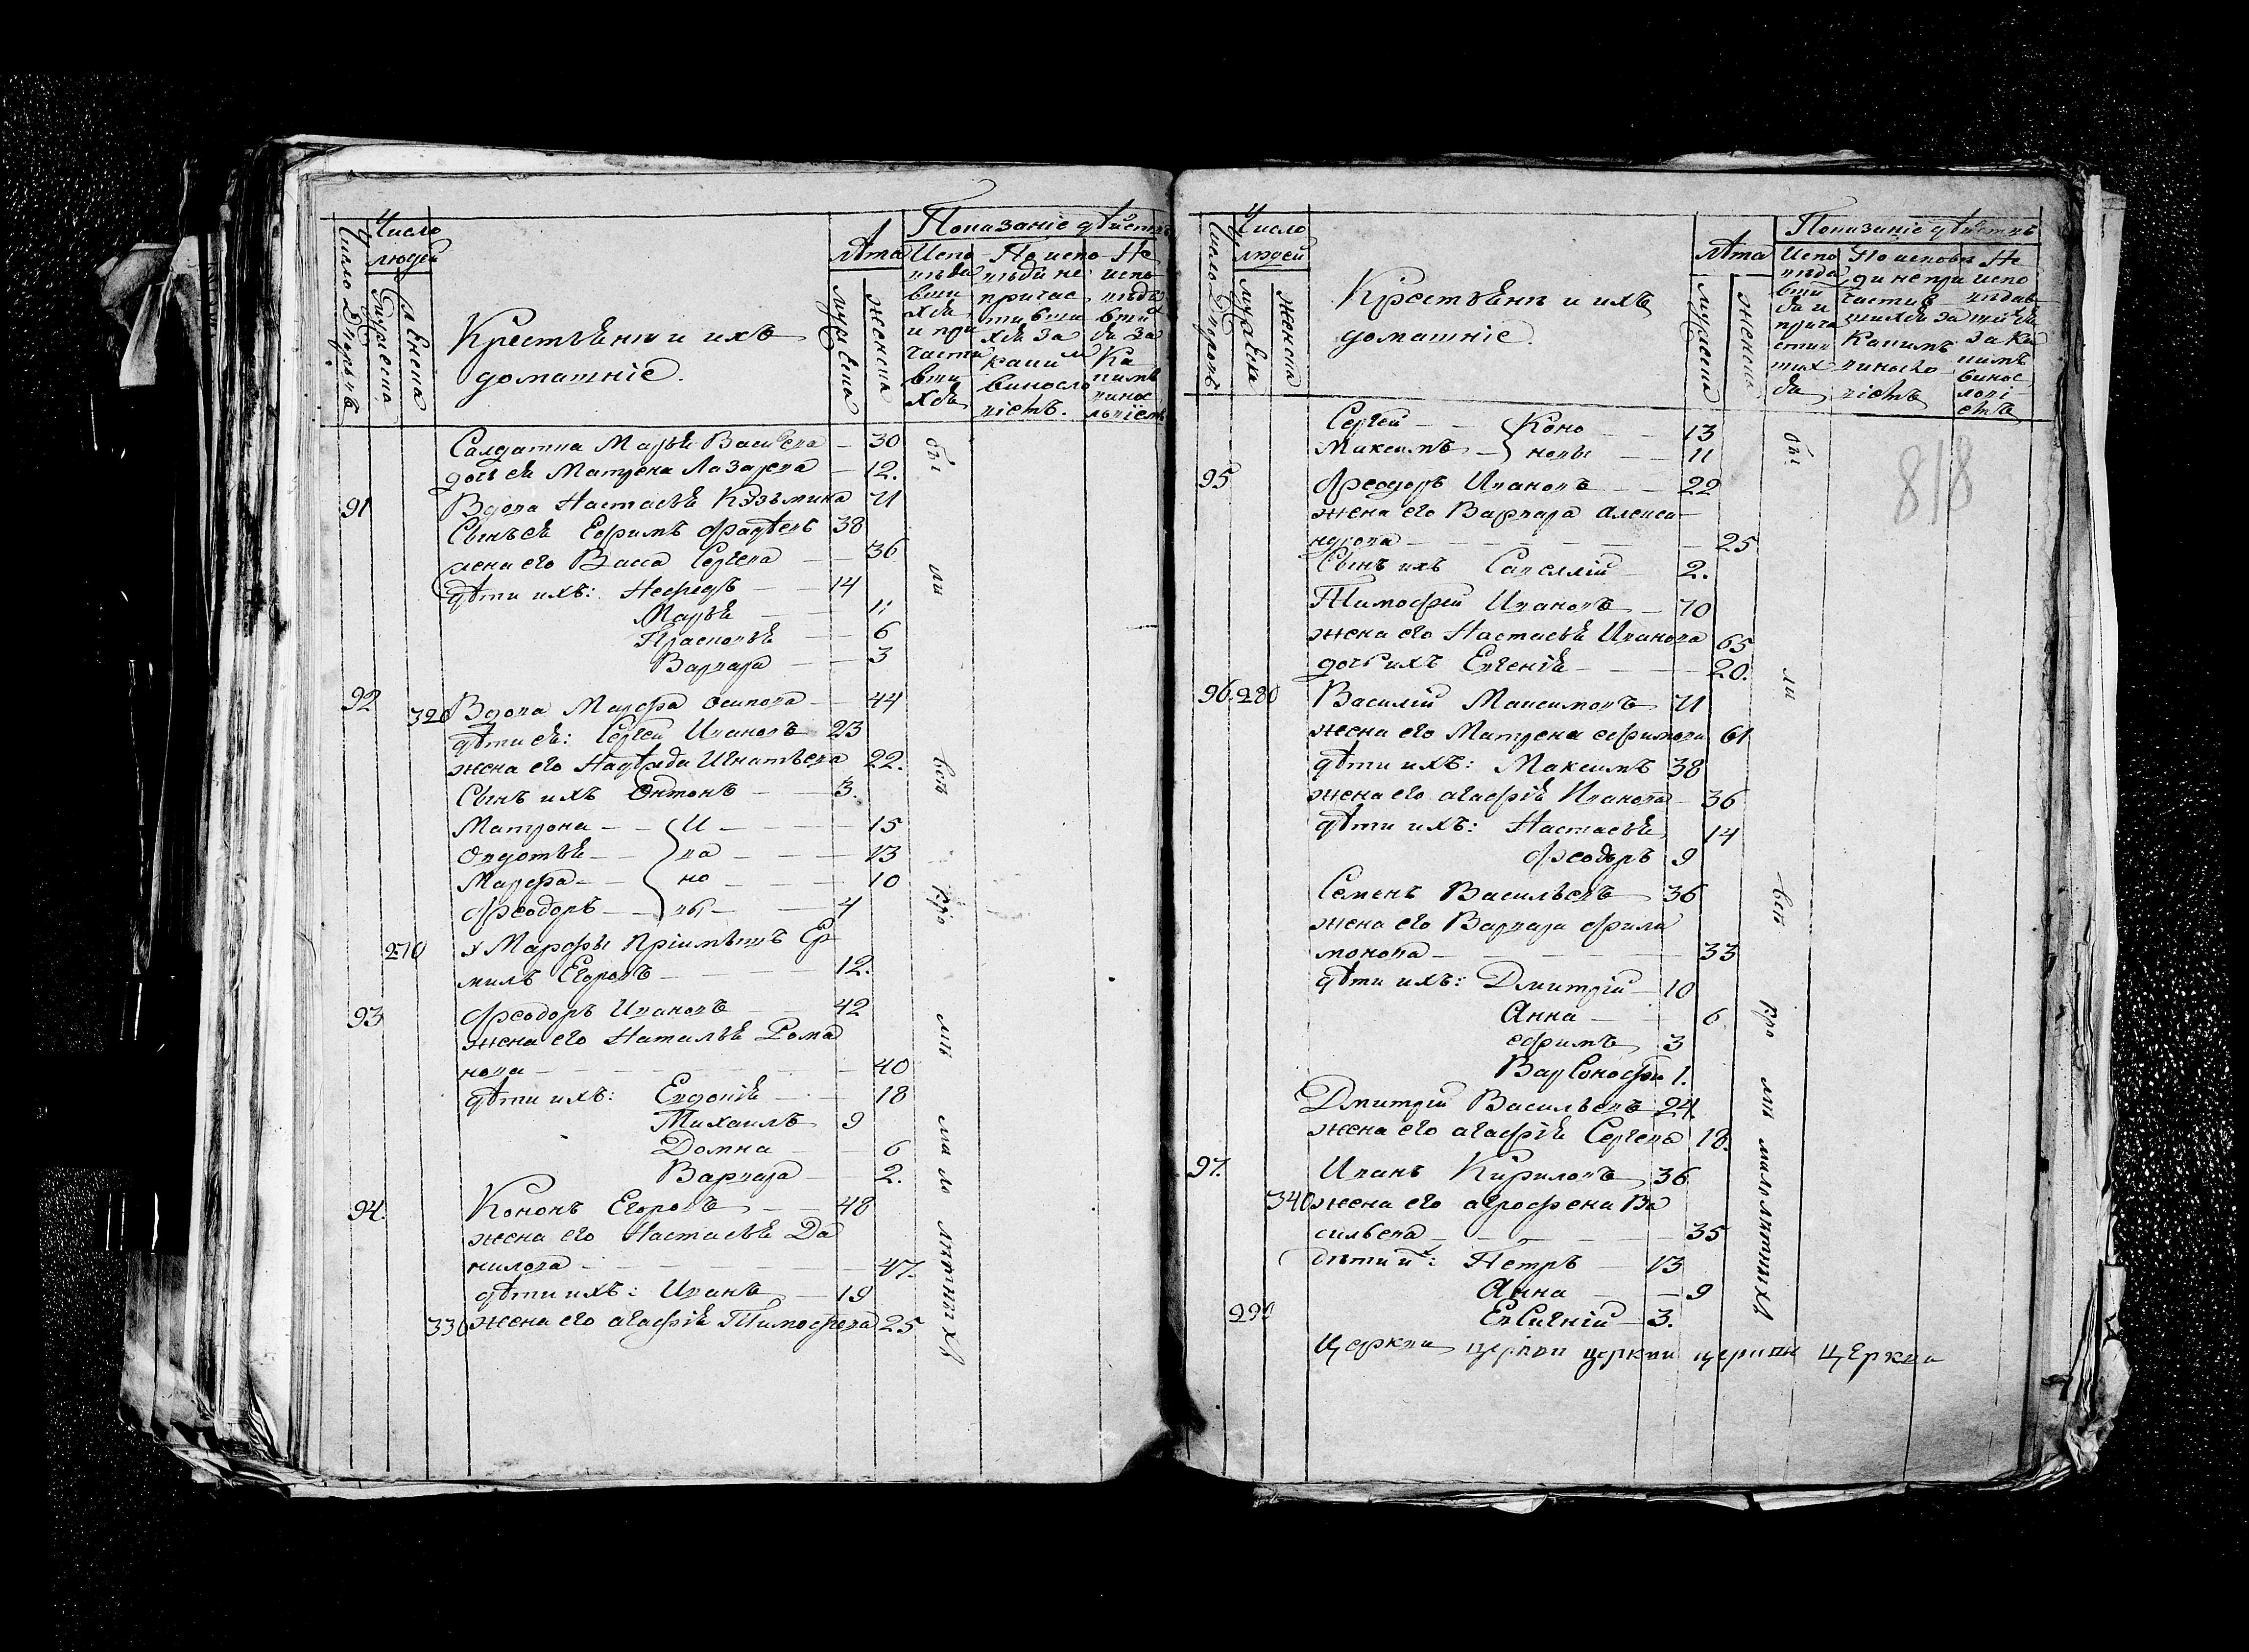 Число Дворовъ
Число людей
Мужеска
Женска
Крестьяни и ихъ
домашніе.
Лѣта
мужеска
женска
Показаніе дѣйств
Испо
вѣда
вши
хся
и при
части
вши
хся
По испо
вѣди не
причас
тивши
хся за
каки м
виносло
віемъ.
Не
испо
вѣда
вши
ся за
Ка
кимъ
винос
ловіемъ
Салдатка Марья Васильева — 30
дочь ея Матрена Лазарева — 12.
91 Вдова Настасья Кузьмина 71
Сынъ ея Ефимъ Фадѣевъ 38
жена его Васса Сергева — 36
дѣти ихъ: Нефедъ — 14
Марья — 11
Прасковья — 6
Варвара — 3
92 320 Вдова Марфа Осипова — 44
дѣти ея: Сергей Ивановъ 23
жена его Надежда Игнатьева 22.
Сынъ ихъ Антонъ — 3.
Матрона — И — 15
Овдотья — ва — 13
Марфа — но — 10
Феодоръ — вы — 4
270 у Марфы пріимышъ Ер
милъ Егоровъ — 12.
93 Феодоръ Ивановъ — 42
жена его Наталья Рома
нова — 40
дѣти ихъ: Евдокія — 18
Михаилъ 9
Домна — 6
Варвара — 2.
94. Кононъ Егоровъ — 48
жена его Настасья Да
нилова — 47.
дѣти ихъ: Иванъ — 19
330 жена его агафія Тимофеева 25
бы
ли
всѣ
кро
мѣ
ма ло
лѣтныхъ
Число Дворовъ
Число
людей
мужска
женска
Крестьяни и ихъ
домашніе.
Лѣта
мужеска
женска
Показаніе дѣйств
Испо
вѣда
вши
ся и
прича
стив
ших
ся
По исповѣ
ди не при
частив
шихся за
Какимъ
винысло
віемъ
Не
испо
вѣдав
шихся
за ка
кимъ
винос
лові
емъ
818
Сергей — Коно — 13
Максимъ — новы — 11
95 Феодоръ Ивановъ — 22
жена его Варвара алекса
ндрова — 25
Сынъ ихъ Савеллій 2.
Тимофей Ивановъ — 70
жена его Настасья Иванова 65
дочь ихъ Евгенія — 20.
96. 280 Василій Максимовъ 71
жена его Матрена ефимова 61
дѣти ихъ: Максимъ 38
жена его агафія Иванова 36
дѣти ихъ: Настасья 14
Феодоръ 9
Семенъ Васильевъ 36
жена его Варвара фили
монова — 33
дѣти ихъ: Дмитрій — 10
Анна — 6
ефимъ 3
Варсонофій 1.
Дмитрій Васильевъ 24.
жена его агафія Сергева 18.
97. Иванъ Кириловъ 36
340 жена его агрофена Ва
сильева — 35
дѣти и: Петръ — 13
Анна — 9
290 Евсигній — 3.
бы
ли
всѣ
кро
мѣ
малолѣтныхъ
Церкви церкви церкви церкви церкви